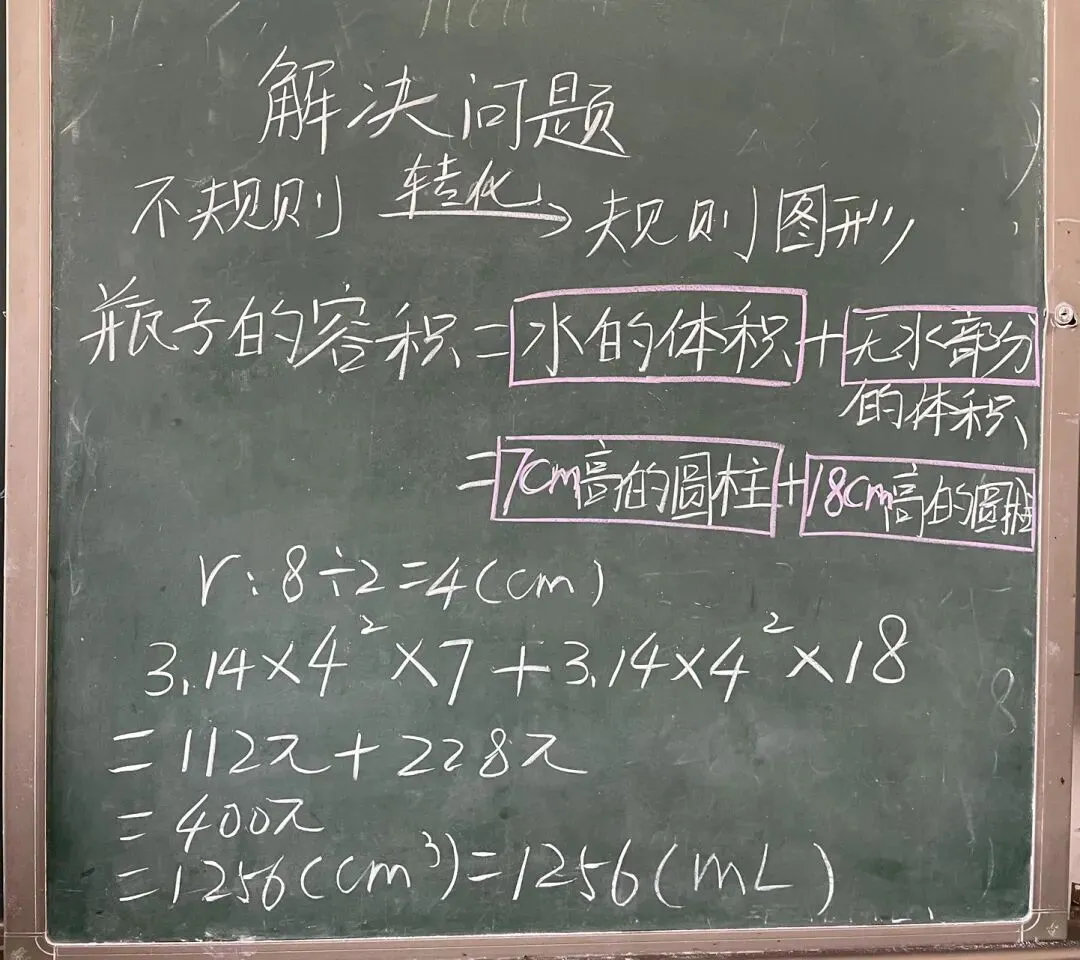 解决问题
不规则 转化→ 规则图形
瓶子的容积=水的体积+无水部分
的体积
=7cm高的圆柱+18cm高的圆柱
r:8÷2=4(cm)
3.14×4²×7+3.14×4²×18
=112π+228π
=400π
=1256(cm³)=1256(mL)